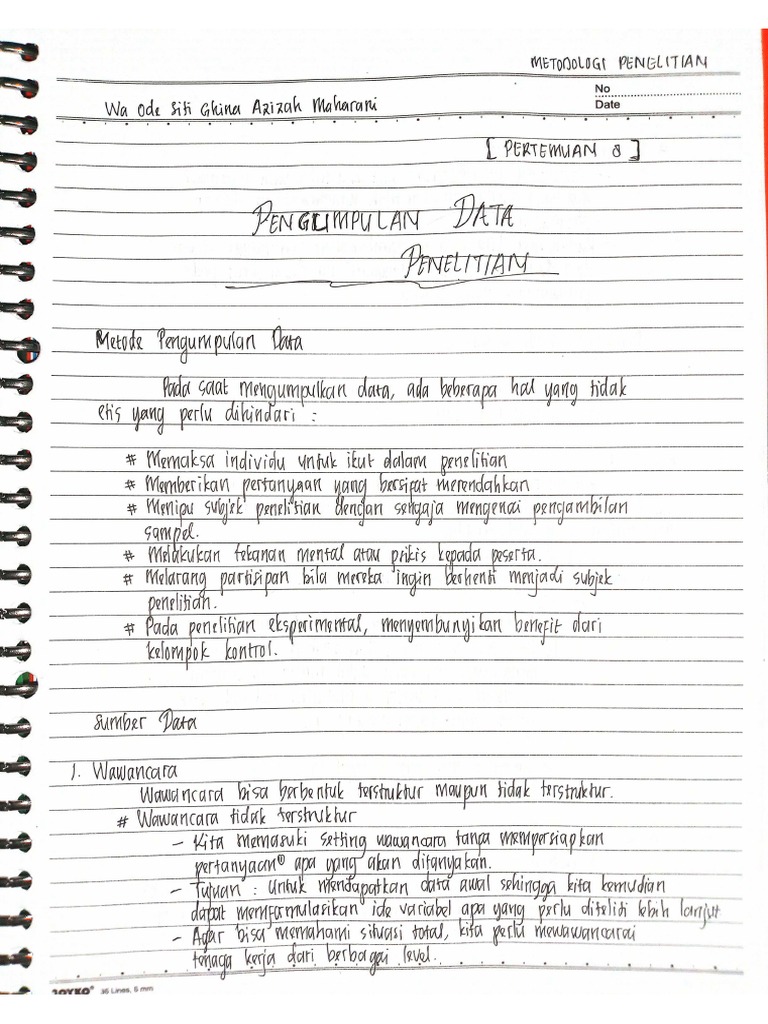 METODOLOGI PENELITIAN
No
Date
Wa Ode Siti Ghina Azizah Maharani
[ PERTEMUAN 8 ]
PENGUMPULAN DATA
PENELITIAN
Metode Pengumpulan Data
Pada saat mengumpulkan data, ada beberapa hal yang tidak
etis yang perlu dihindari :
# Memaksa individu untuk ikut dalam penelitian
# Memberikan pertanyaan yang bersipat merendahkan
# Menipu subjek penelitian dengan sengaja mengenai pengambilan
sampel.
# Melakukan tekanan mental atau prikis kepada peserta.
# Melarang partisipan bila mereka ingin berhenti menjadi subjek
penelitian.
# Pada penelitian eksperimental, menyembunyikan benefit dari
kelompok kontrol.
Sumber Data
1. Wawancara
Wawancara bisa berbentuk terstruktur maupun tidak terstruktur.
# Wawancara tidak terstruktur
- Kita memasuki setting wawancara tanpa mempersiapkan
pertanyaan² apa yang akan ditanyakan.
- Tujuan : untuk mendapatkan data awal sehingga kita kemudian
dapat memformulasikan ide variabel apa yang perlu diteliti lebih lanjut
- Agar bisa memahami situasi total, kita perlu mewawancarai
tenaga kerja dari berbagai level.
JOYKO® 35 Lines, 5 mm